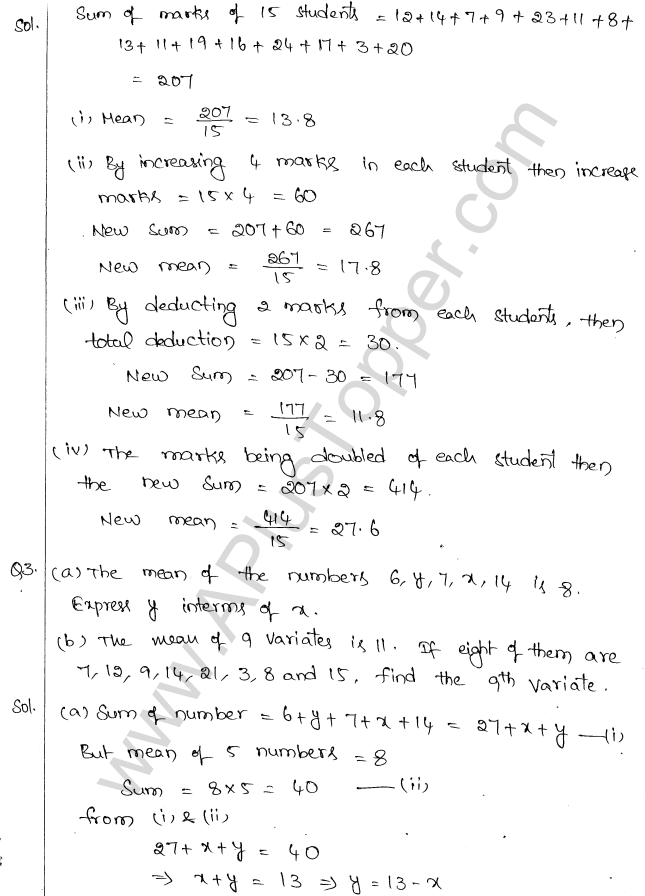 Sol. Sum of marks of 15 students = 12+14+7+9+23+11+8+
13+11+19+16+24+17+3+20
= 207
(i) Mean = 207/15 = 13.8
(ii) By increasing 4 marks in each student then increase
marks = 15 × 4 = 60
New Sum = 207+60 = 267
New mean = 267/15 = 17.8
(iii) By deducting 2 marks from each students, then
total deduction = 15 × 2 = 30.
New Sum = 207 - 30 = 177
New mean = 177/15 = 11.8
(iv) The marks being doubled of each student then
the new Sum = 207 × 2 = 414.
New mean = 414/15 = 27.6
Q3. (a) The mean of the numbers 6, y, 7, x, 14 is 8.
Express y interms of x.
(b) The mean of 9 variates is 11. If eight of them are
7, 12, 9, 14, 21, 3, 8 and 15, find the 9th variate.
Sol. (a) Sum of number = 6+y+7+x+14 = 27+x+y —(i)
But mean of 5 numbers = 8
Sum = 8×5 = 40 —(ii)
from (i) & (ii)
27+x+y = 40
⇒ x+y = 13 ⇒ y = 13-x
www.APlusTopper.com